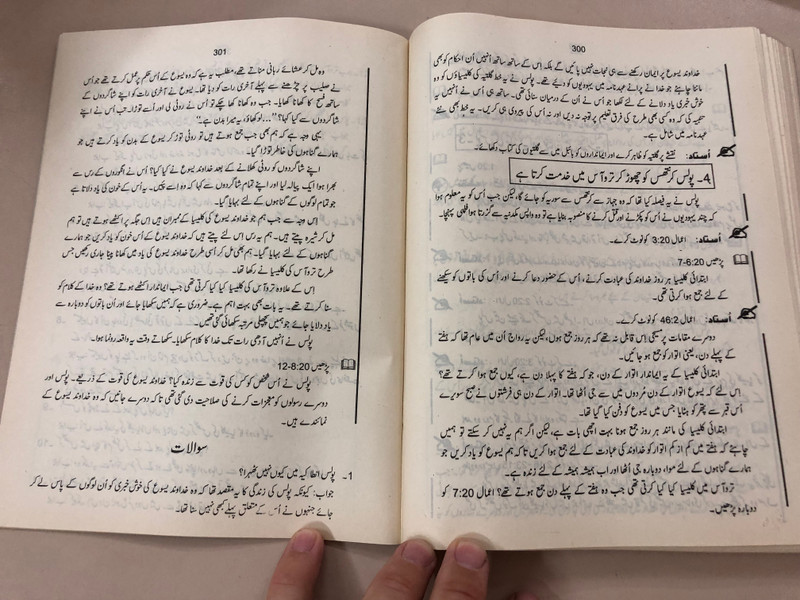 300
خداوند یسوع پر ایمان رکھنے سے ہی نجات نہیں پائیں گے بلکہ اِس کے ساتھ ساتھ اُنہیں اُن احکام کو بھی
ماننا چاہئے جو خدا نے پرانے عہدنامہ میں یہودیوں کو دیئے تھے۔ پولس نے یہ خط گلتیہ کی کلیسیاؤں کو وہ
خوش خبری یاد دلانے کے لئے لکھا جو اُس نے اُن کے درمیان سنائی تھی۔ ساتھ ہی اُس نے اُنہیں یہ
کہ وہ کسی بھی طرح کی فرق تعلیم پر توجہ نہ دیں اور نہ اُس کی پیروی ہی کریں۔ یہ خط بھی نئے
عہدنامہ میں شامل ہے۔
اُستاد: نقشے پر گلتیہ کو ظاہر کرے اور ایمانداروں کو بائبل میں سے گلتیوں کی کتاب دکھائے۔
4۔ پولس کرنتھس کو چھوڑ کر تروآس میں خدمت کرتا ہے
پولس نے یہ فیصلہ کیا تھا کہ وہ جہاز سے کرنتھس سے سوریہ کو جائے گا، لیکن جب اُس کو یہ معلوم ہوا
کہ چند یہودیوں نے اُس کو پکڑنے اور قتل کرنے کا منصوبہ بنایا ہے تو وہ واپس مکدنیہ سے گزرتا ہوا فلپی پہنچا۔
اُستاد: اعمال 3:20 کو نوٹ کرے۔
پڑھیں 7-6:20
ابتدائی کلیسیا ہر روز خداوند کی عبادت کرنے، اُس کے حضور دعا کرنے اور اُس کی باتوں کو سیکھنے
کے لئے جمع ہوا کرتی تھی۔
اُستاد: اعمال 46:2 کو نوٹ کرے۔
دوسرے مقامات پر مسیحی اِس قابل نہ تھے کہ ہر روز جمع ہوں، لیکن یہ رواج اُن میں عام تھا کہ ہفتے
کے پہلے دن، یعنی اتوار کو جمع ہو جائیں۔
ابتدائی کلیسیا کے یہ ایماندار اتوار کے دن، جو کہ ہفتے کا پہلا دن ہے، کیوں جمع ہوا کرتے تھے؟
اس لئے کہ یسوع اتوار کے دن مُردوں میں سے جی اُٹھا تھا۔ اتوار کے دن ہی فرشتوں نے صبح سویرے
اُس قبر سے پتھر کو ہٹایا جس میں یسوع کو دفن کیا گیا تھا۔
ابتدائی کلیسیا کی مانند ہر روز جمع ہونا بہت اچھی بات ہے، لیکن اگر ہم یہ نہیں کر سکتے تو ہمیں
چاہئے کہ ہفتے میں کم از کم اتوار کو خداوند کی عبادت کے لئے جمع ہوا کریں تاکہ ہم یسوع کو یاد کریں جو
ہمارے گناہوں کے لئے موا، دوبارہ جی اُٹھا اور اب ہمیشہ ہمیشہ کے لئے زندہ ہے۔
تروآس میں کلیسیا کیا کیا کرتی تھی جب وہ ہفتے کے پہلے دن جمع ہوتے تھے؟ اعمال 7:20 کو
دوبارہ پڑھیں۔
301
وہ مل کر عشائے ربانی مناتے تھے، مطلب یہ ہے کہ وہ یسوع کے اُس حکم پر عمل کرتے تھے جو اُس
نے صلیب پر چڑھنے سے پہلے آخری رات کو دیا تھا۔ یسوع نے آخری رات کو اپنے شاگردوں کے
ساتھ فسح کا کھانا کھایا۔ جب وہ کھانا کھا چکے تو اُس نے روٹی لی اور اُسے توڑا۔ تب اُس نے اپنے
شاگردوں سے کیا کہا؟ ”...لو کھاؤ، یہ میرا بدن ہے۔“
یہی وجہ ہے کہ ہم بھی جب جمع ہوتے ہیں تو روٹی توڑ کر یسوع کے بدن کو یاد کرتے ہیں جو
ہمارے گناہوں کی خاطر توڑا گیا۔
اپنے شاگردوں کو روٹی کھلانے کے بعد خداوند یسوع نے کیا کیا؟ اُس نے انگوروں کے رس سے
بھرا ہوا ایک پیالہ لیا اور اپنے تمام شاگردوں سے کہا کہ وہ اِسے پئیں۔ یہ اُس کے خون کی یاد دلاتا ہے
جو تمام لوگوں کے گناہوں کے لئے بہایا گیا۔
اِس وجہ سے جب ہم جو خداوند یسوع کی کلیسیا کے ممبران ہیں اِس جگہ پر اکٹھے ہوتے ہیں تو ہم
مل کر شیرہ پیتے ہیں۔ ہم یہ رس اِس لئے پیتے ہیں کہ خداوند یسوع کے اُس خون کو یاد کریں جو ہمارے
گناہوں کے لئے بہایا گیا۔ ہم بھی مل کر اُسی طرح خداوند یسوع کی یاد میں کھانا پینا جاری رکھیں جس
طرح تروآس کی کلیسیا نے رکھا تھا۔
اس کے علاوہ تروآس کی کلیسیا کیا کیا کرتی تھی جب ایماندار اکٹھے ہوتے تھے؟ وہ خدا کے کلام کو
سنا کرتے تھے۔ یہ بات بھی بہت اہم ہے۔ ضروری ہے کہ ہمیں سکھایا جائے اور اُن باتوں کو دوبارہ سے
یاد دلایا جائے جو ہمیں پچھلی مرتبہ سکھائی گئی تھیں۔
پولس نے اُنہیں آدھی رات تک خدا کا کلام سکھایا۔ سکھاتے وقت یہ واقعہ رونما ہوا۔
پڑھیں 12-8:20
پولس نے اُس شخص کو کس کی قوت سے زندہ کیا؟ خداوند یسوع کی قوت کے ذریعے۔ پولس اور
دوسرے رسولوں کو معجزات کرنے کی صلاحیت دی گئی تھی تاکہ دوسرے جانیں کہ وہ خداوند یسوع کے
نمائندے ہیں۔
سوالات
1۔ پولس انطاکیہ میں کیوں نہیں ٹھہرا؟
جواب: کیونکہ پولس کی زندگی کا یہ مقصد تھا کہ وہ خداوند یسوع کی خوش خبری کو اُن لوگوں کے پاس لے کر
جائے جنہوں نے اُس کے متعلق پہلے کبھی نہیں سنا تھا۔